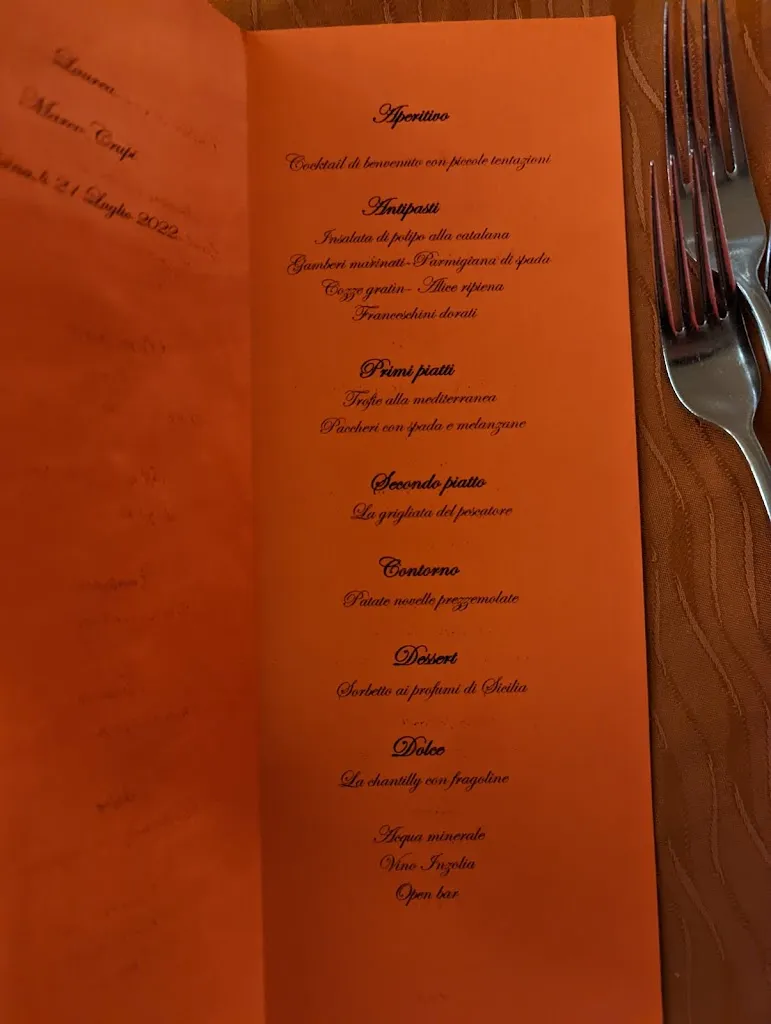 Laurea
Marco Crupi
21 Luglio 2022
Aperitivo
Cocktail di benvenuto con piccole tentazioni
Antipasti
Insalata di polipo alla catalana
Gamberi marinati-Parmigiana di spada
Cozze gratin- Alice ripiena
Franceschini dorati
Primi piatti
Trofie alla mediterranea
Paccheri con spada e melanzane
Secondo piatto
La grigliata del pescatore
Contorno
Patate novelle prezzemolate
Dessert
Sorbetto ai profumi di Sicilia
Dolce
La chantilly con fragoline
Acqua minerale
Vino Inzolia
Open bar